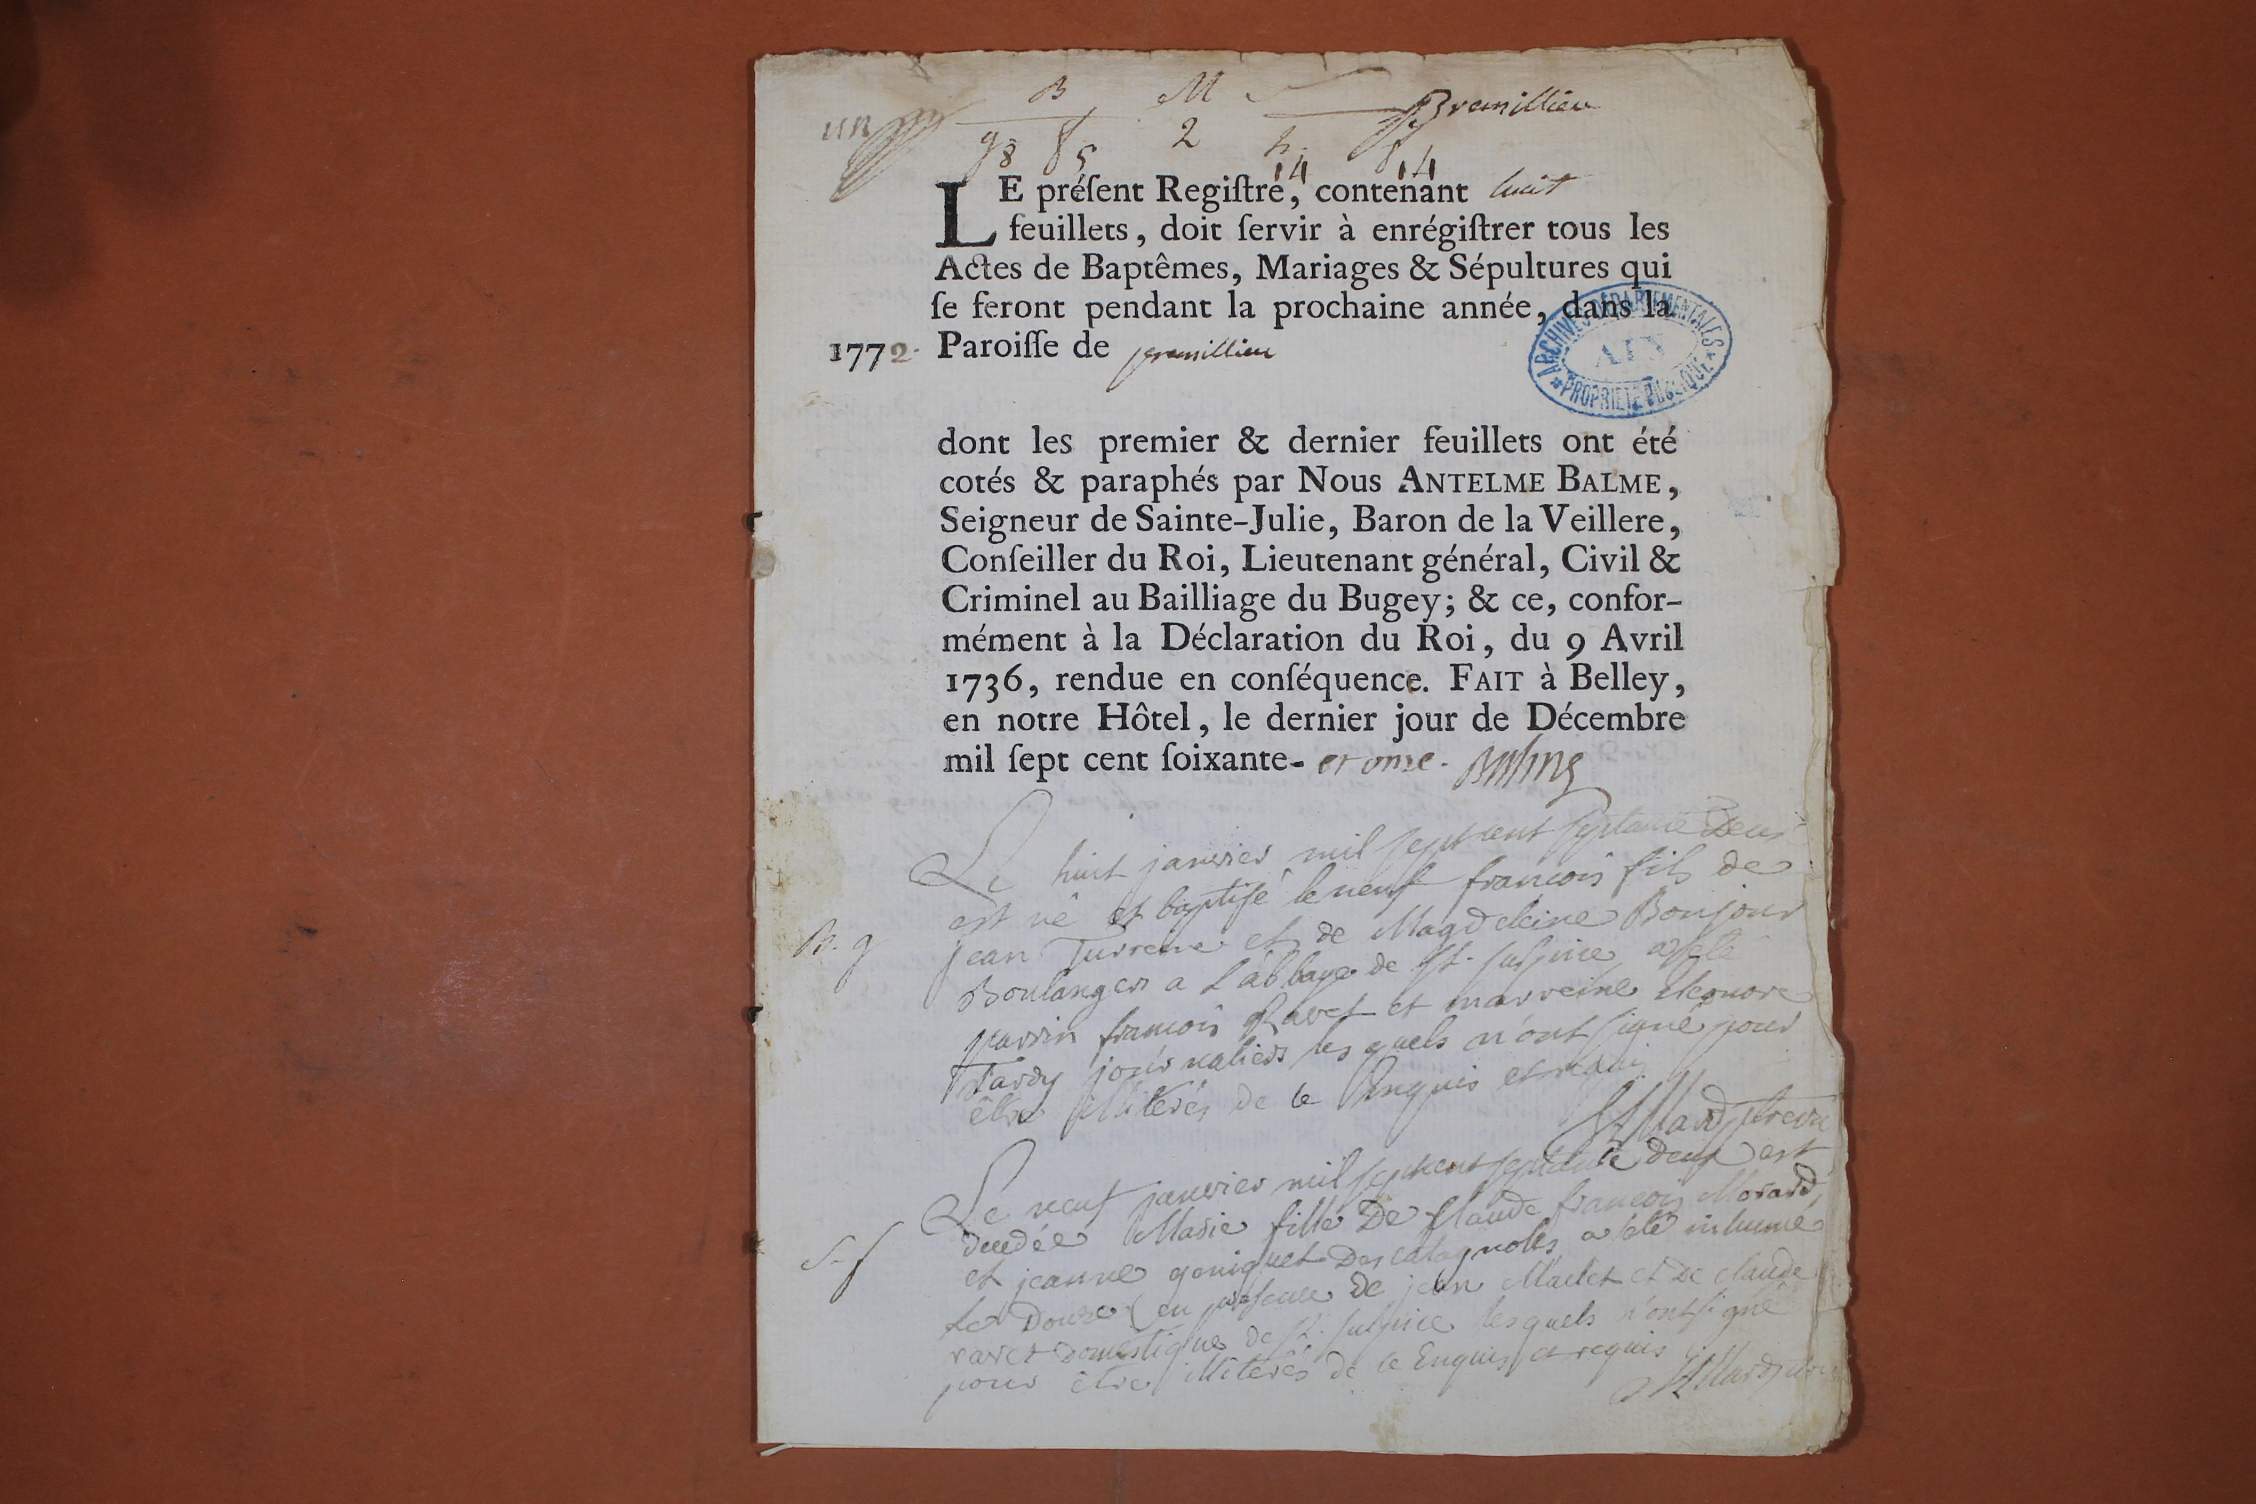 B M S
un Premillieu
g 8 f 5 2 h.
14 14
LE préſent Regiſtre, contenant huit
feuillets, doit ſervir à enrégiſtrer tous les
Actes de Baptêmes, Mariages & Sépultures qui
ſe feront pendant la prochaine année, dans la
1772. Paroiſſe de premillieu
ARCHIVES DÉPARTEMENTALES
AIN
PROPRIÉTÉ PUBLIQUE
dont les premier & dernier feuillets ont été
cotés & paraphés par Nous ANTELME BALME,
Seigneur de Sainte-Julie, Baron de la Veillere,
Conſeiller du Roi, Lieutenant général, Civil &
Criminel au Bailliage du Bugey; & ce, confor-
mément à la Déclaration du Roi, du 9 Avril
1736, rendue en conſéquence. FAIT à Belley,
en notre Hôtel, le dernier jour de Décembre
mil ſept cent ſoixante- et onze. Balme
Le huit janvier mil sept cent septante Deux
est né et baptisé le neuf françois fils de
B. g jean Turrene et de Magdeleine Bonjour
Boulanger a L'abbaye de st. sulpice a été
parrin françois Ravet et marreine eleonore
Tardy journaliers les quels n'ont signé pour
être illiterés de ce Enquis et requis
Le neuf janvier mil sept cent septante deux est
decedée Marie fille De Claude françois Morard
S. f et jeanne goniquet Des catagnoles a été inhumé
Le Douze en presence de jean Maclet et De claude
ravet Domestique de st. sulpice lesquels n'ont signé
pour être illiterés de ce Enquis et requis